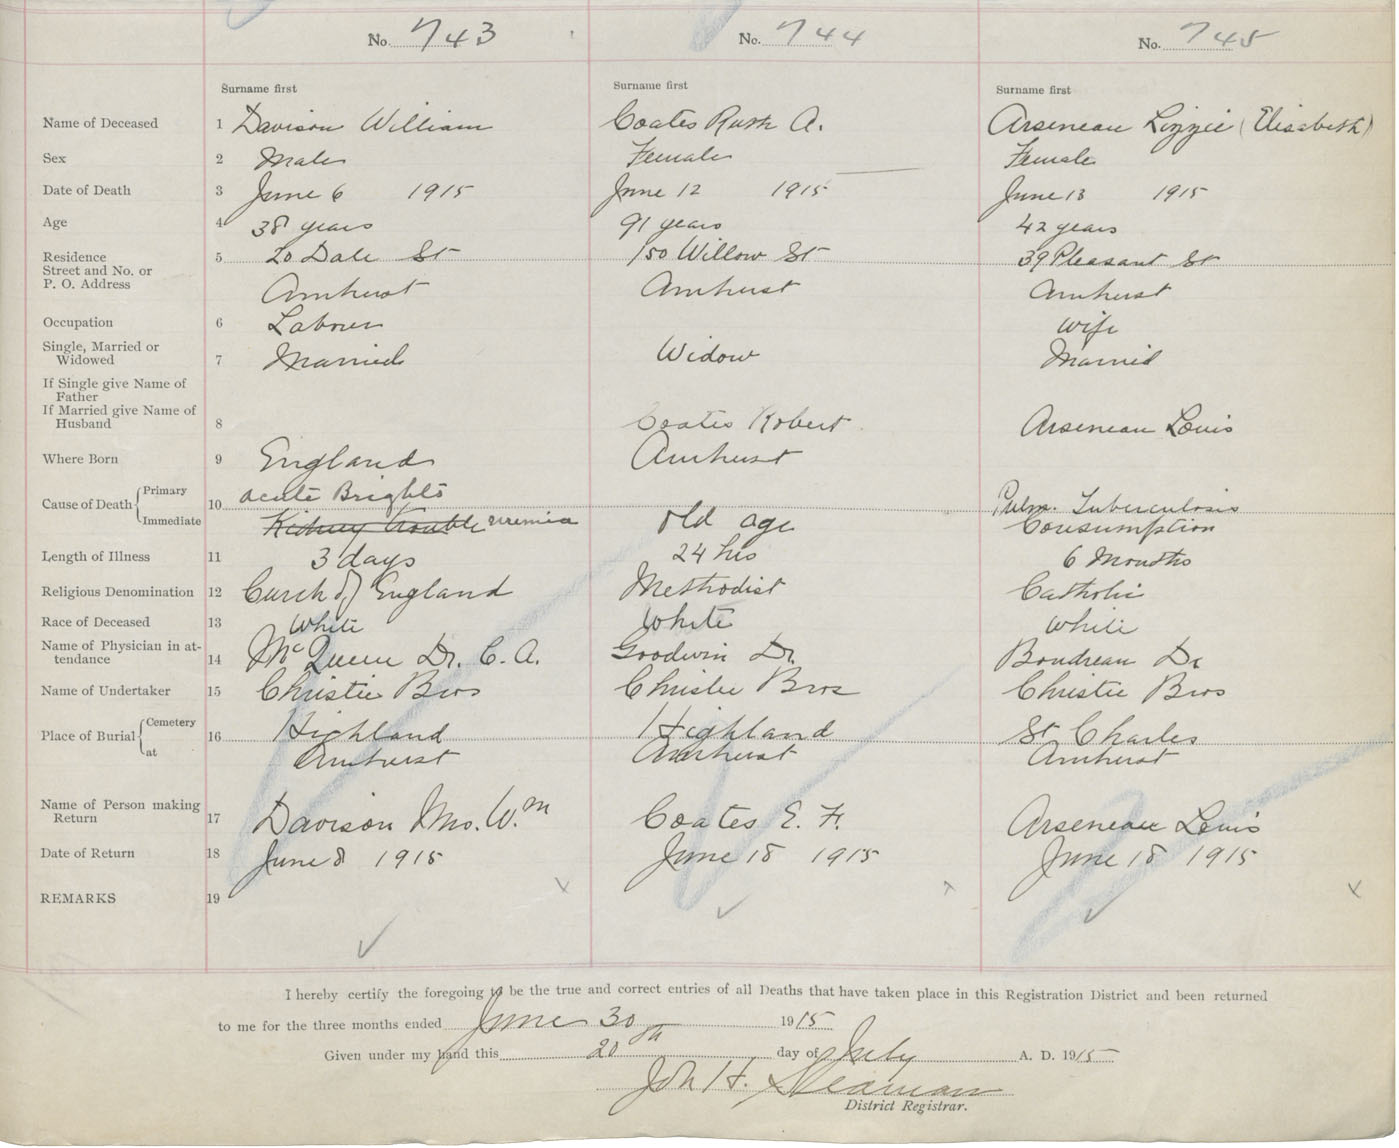 No. 743 No. 744 No. 745
Surname first Surname first Surname first
Name of Deceased 1 Davison William Coates Ruth A. Arseneau Lizzie (Elisabeth)
Sex 2 Male Female Female
Date of Death 3 June 6 1915 June 12 1915 June 13 1915
Age 4 38 years 91 years 42 years
Residence 5 20 Dale St 150 Willow St 39 Pleasant St
Street and No. or
P. O. Address Amherst Amherst Amherst
Occupation 6 Laborer Wife
Single, Married or
Widowed 7 Married Widow Married
If Single give Name of
Father
If Married give Name of
Husband 8 Coates Robert Arseneau Louis
Where Born 9 England Amherst
Cause of Death Primary 10 acute Brights Pulm. Tuberculosis
Immediate Kidney trouble uremia old age Consumption
Length of Illness 11 3 days 24 hrs 6 Months
Religious Denomination 12 Curch of England Methodist Catholic
Race of Deceased 13 White White White
Name of Physician in at-
tendance 14 McQueen Dr. C. A. Goodwin Dr. Boudreau Dr
Name of Undertaker 15 Christie Bros Christie Bros Christie Bros
Place of Burial Cemetery 16 Highland Highland St Charles
at Amhurst Amherst Amherst
Name of Person making
Return 17 Davison Mrs. Wm Coates E. F. Arseneau Louis
Date of Return 18 June 8 1915 June 18 1915 June 18 1915
REMARKS 19
I hereby certify the foregoing to be the true and correct entries of all Deaths that have taken place in this Registration District and been returned
to me for the three months ended June 30 1915
Given under my hand this 20th day of July A. D. 1915
Jon H. Seaman
District Registrar.